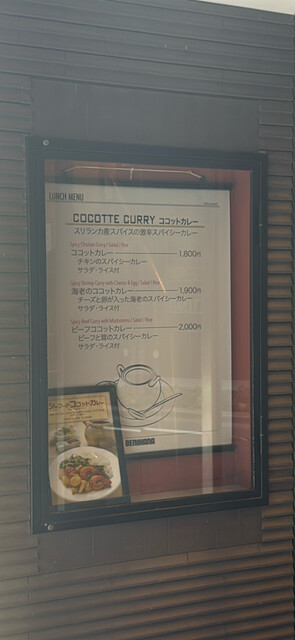 LUNCH MENU
COCOTTE CURRY ココットカレー
スリランカ産スパイスの激辛スパイシーカレー
Spicy Chicken Curry / Salad / Rice
ココットカレー 1,800円
チキンのスパイシーカレー
サラダ・ライス付
Spicy Shrimp Curry with Cheese & Egg / Salad / Rice
海老のココットカレー 1,900円
チーズと卵が入った海老のスパイシーカレー
サラダ・ライス付
Spicy Beef Curry with Mushrooms / Salad / Rice
ビーフココットカレー 2,000円
ビーフと茸のスパイシーカレー
サラダ・ライス付
シーフードココットカレー
BENIHANA